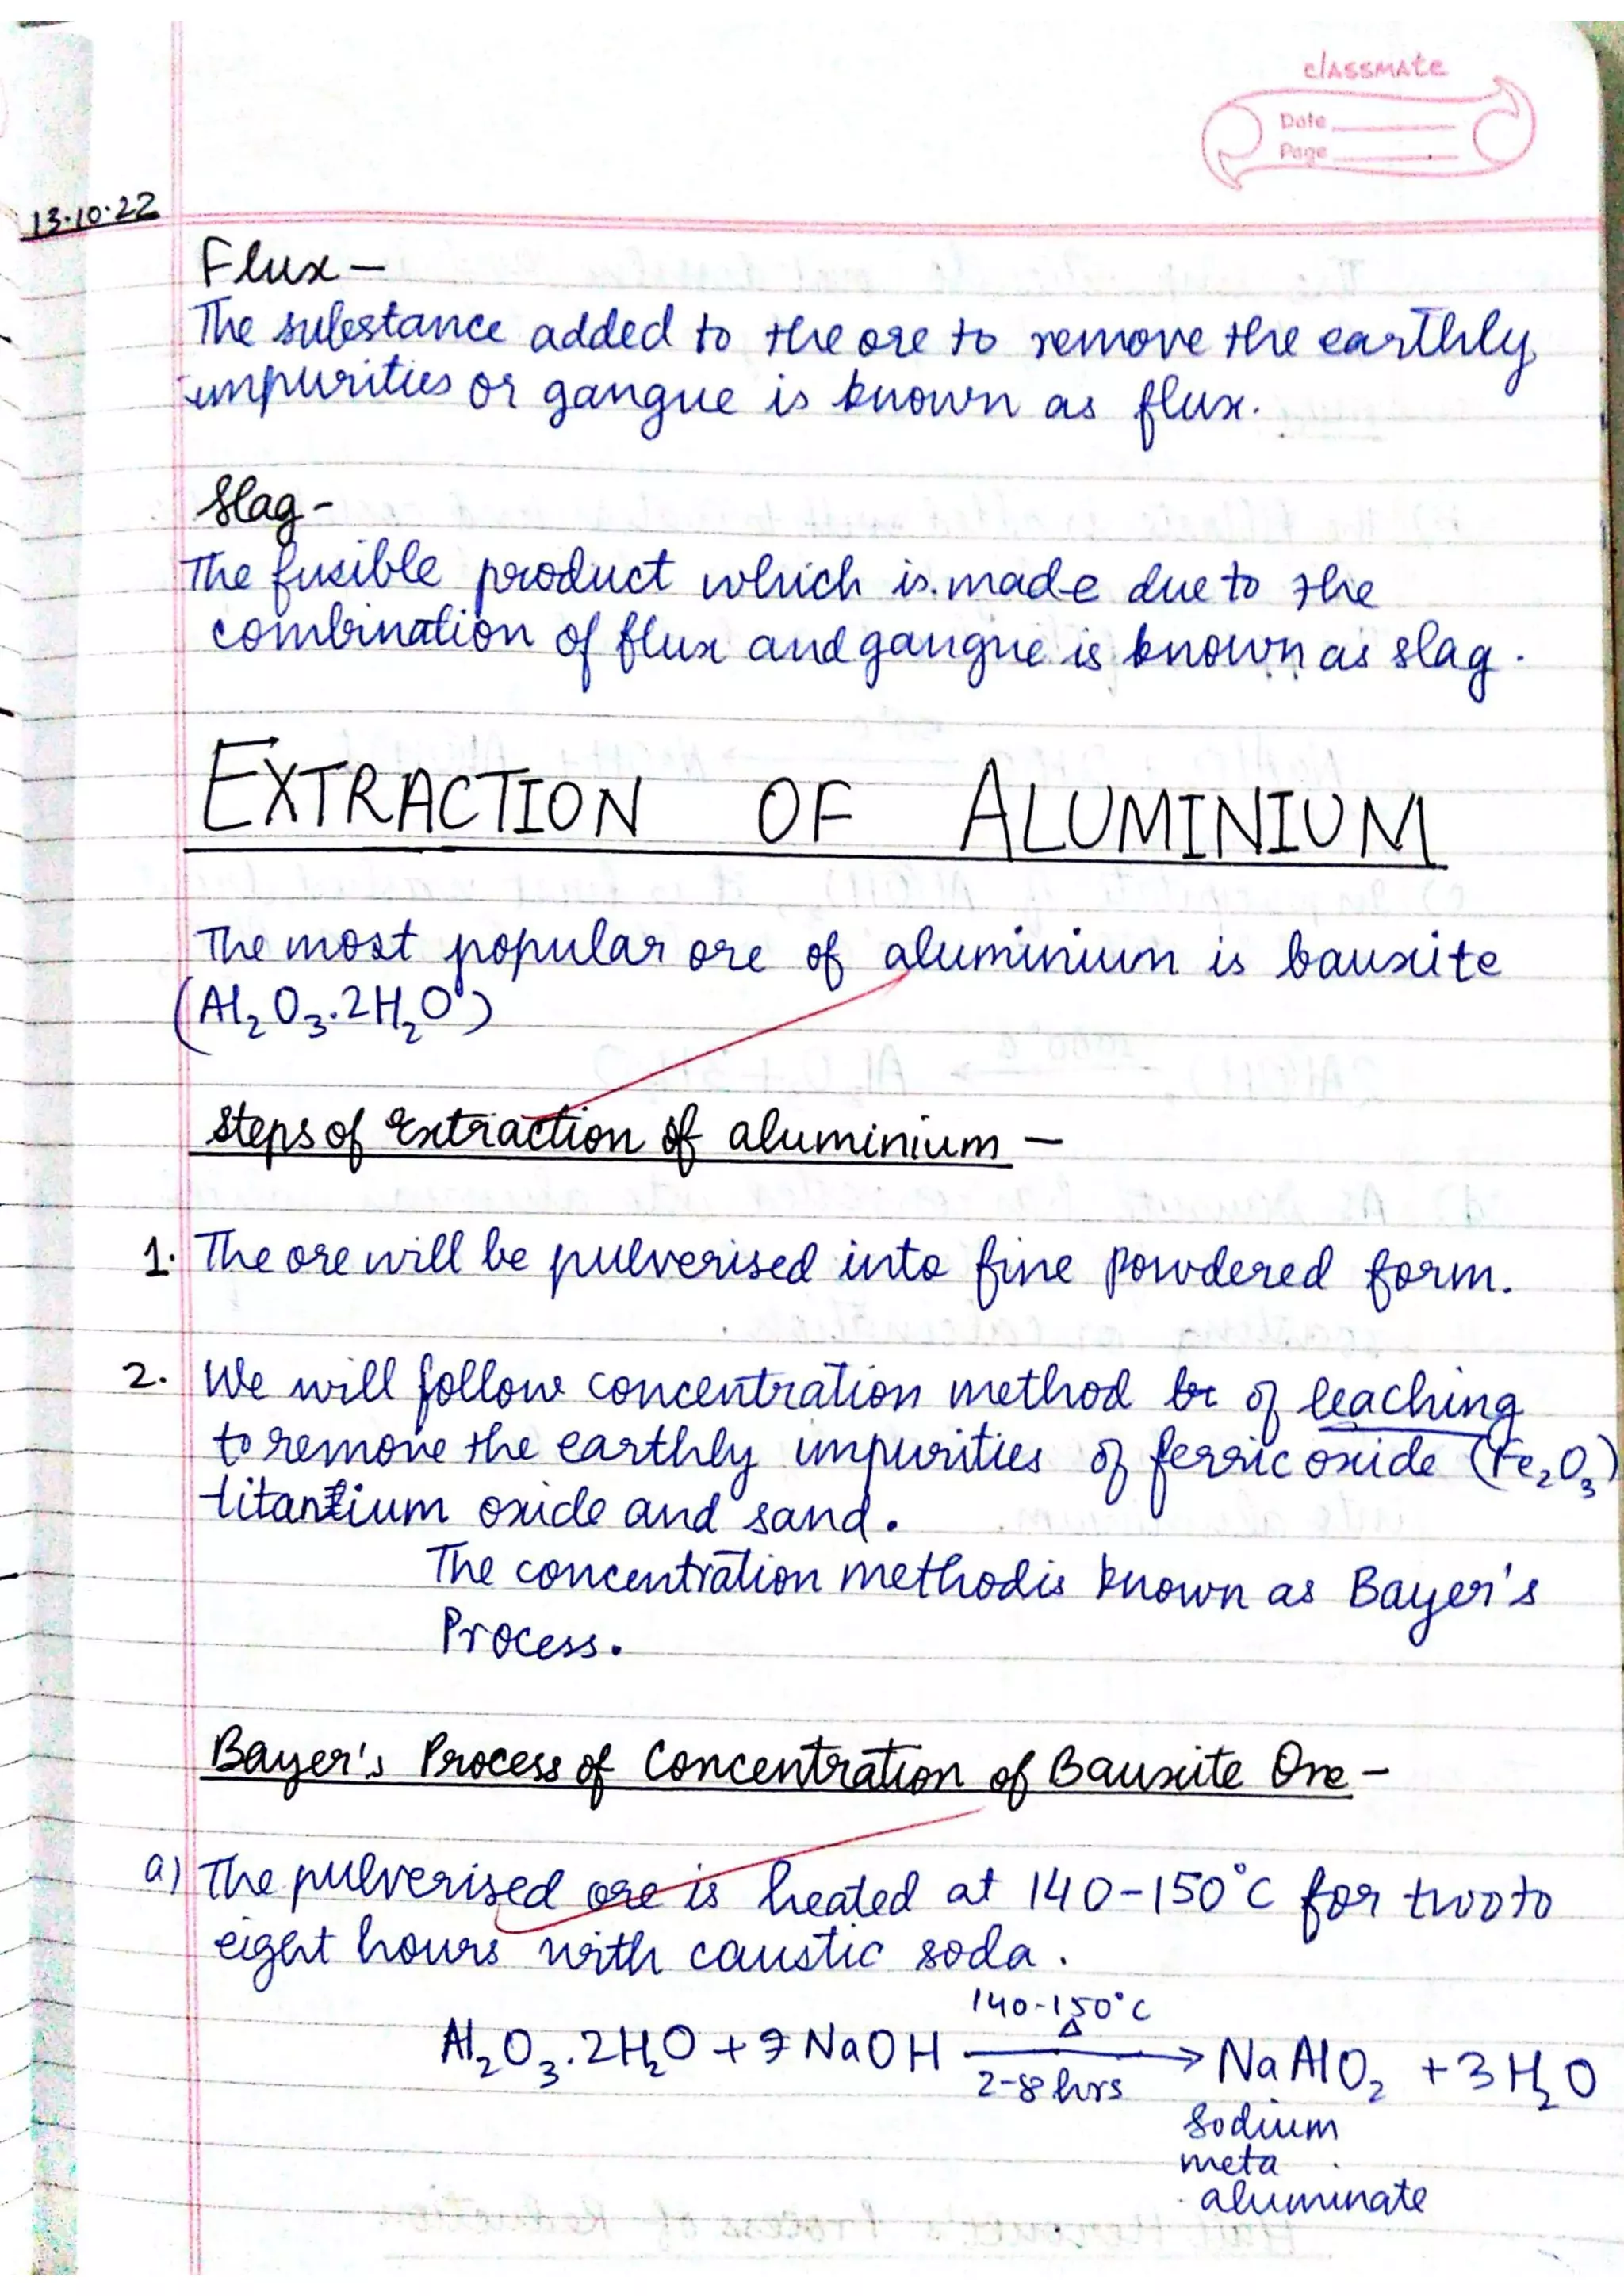 classmate
Date
Page
13.10.22
Flux –
The substance added to the ore to remove the earthly
impurities or gangue is known as flux.
Slag -
The fusible product which is made due to the
combination of flux and gangue is known as slag.
EXTRACTION OF ALUMINIUM
The most popular ore of aluminium is bauxite
(Al₂O₃.2H₂O)
Steps of Extraction of aluminium –
1. The ore will be pulverised into fine powdered form.
2. We will follow concentration method of leaching
to remove the earthly impurities of ferric oxide (Fe₂O₃)
titantium oxide and sand.
The concentration method is known as Bayer's
Process.
Bayer's Process of Concentration of Bauxite Ore –
a) The pulverised ore is heated at 140-150°C for two to
eight hours with caustic soda.
140-150°C
Δ
Al₂O₃.2H₂O + NaOH → NaAlO₂ + 3H₂O
2-8 hrs
Sodium
meta
aluminate